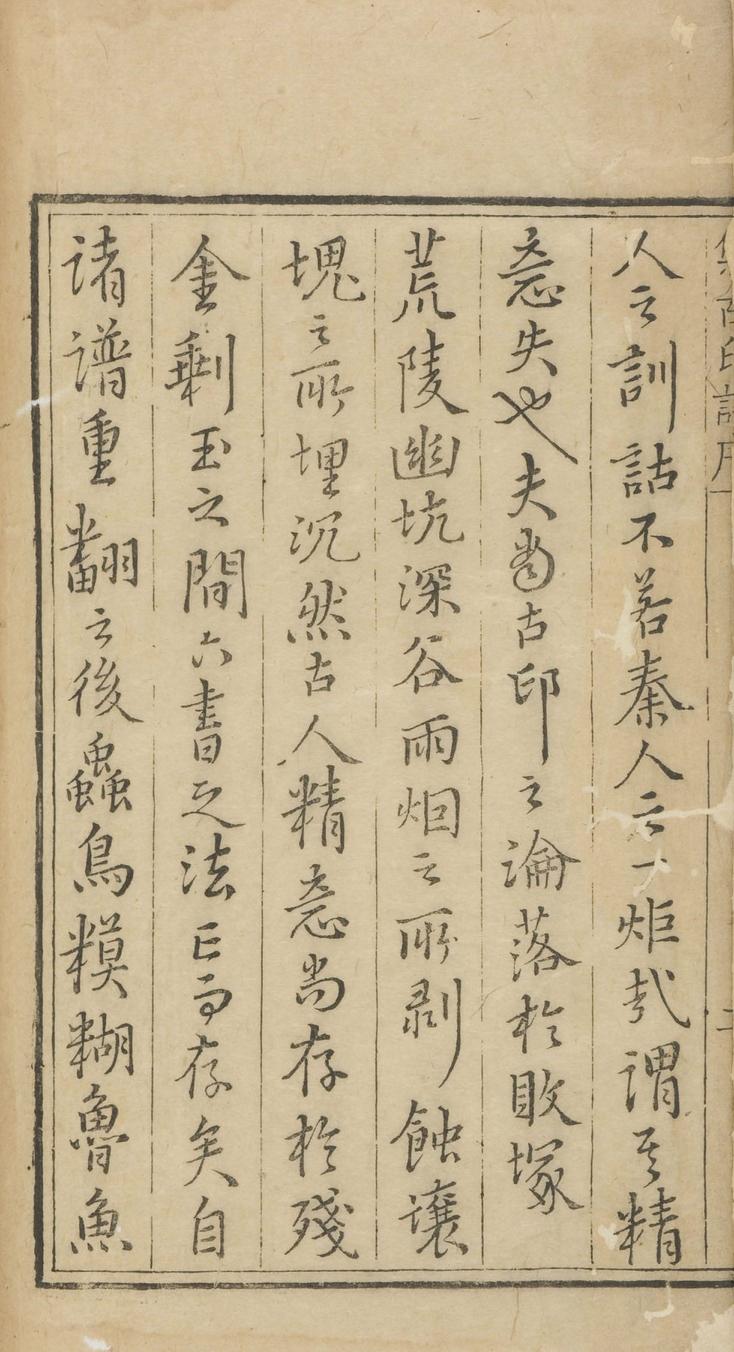 集古印譜序 二
人之訓詁不若秦人之一炬哉謂其精
意失也夫當古印之淪落於敗塚
荒陵幽坑深谷雨烟之所剥蝕壤
塊之所埋沉然古人精意尚存於殘
金剩玉之間六書之法亡而存矣自
諸譜重翻之後蟲鳥糢糊魯魚